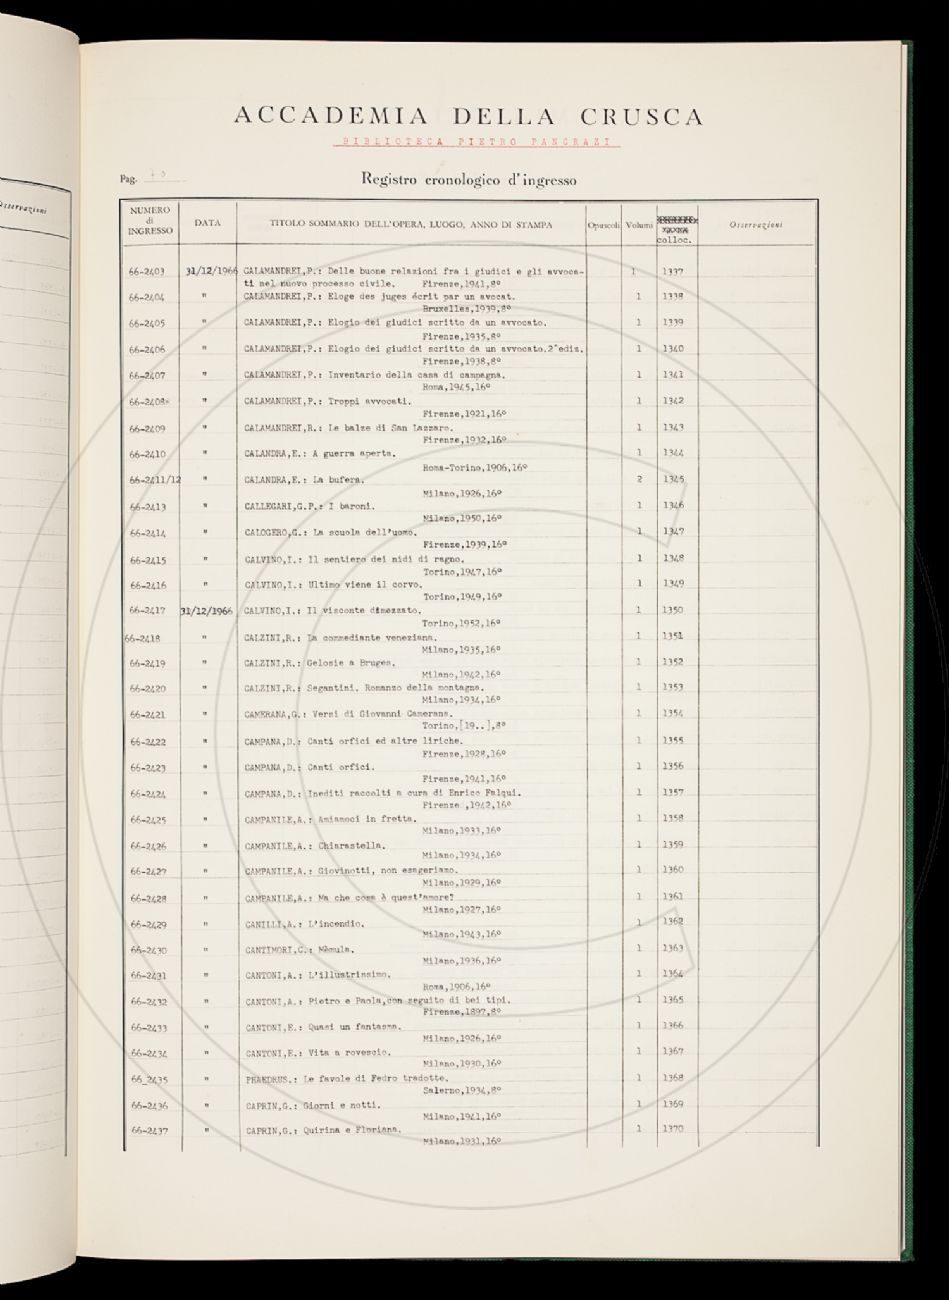 Osservazioni
ACCADEMIA DELLA CRUSCA
BIBLIOTECA PIETRO PANCRAZI
Pag.
Registro cronologico d'ingresso
NUMERO di INGRESSO DATA TITOLO SOMMARIO DELL'OPERA, LUOGO, ANNO DI STAMPA Opuscoli Volumi colloc. Osservazioni
66-2403 31/12/1966 CALAMANDREI,P.: Delle buone relazioni fra i giudici e gli avvoca- 1 1337
ti nel nuovo processo civile. Firenze,1941,8º
66-2404 " CALAMANDREI,P.: Eloge des juges écrit par un avocat. 1 1338
Bruxelles,1939,8º
66-2405 " CALAMANDREI,P.: Elogio dei giudici scritto da un avvocato. 1 1339
Firenze,1935,8º
66-2406 " CALAMANDREI,P.: Elogio dei giudici scritto da un avvocato.2ªediz. 1 1340
Firenze,1938,8º
66-2407 " CALAMANDREI,P.: Inventario della casa di campagna. 1 1341
Roma,1945,16º
66-2408 " CALAMANDREI,P.: Troppi avvocati. 1 1342
Firenze,1921,16º
66-2409 " CALAMANDREI,R.: Le balze di San Lazzaro. 1 1343
Firenze,1932,16º
66-2410 " CALANDRA,E.: A guerra aperta. 1 1344
Roma-Torino,1906,16º
66-2411/12 " CALANDRA,E.: La bufera. 2 1345
Milano,1926,16º
66-2413 " CALLEGARI,G.P.: I baroni. 1 1346
Milano,1950,16º
66-2414 " CALOGERO,G.: La scuola dell'uomo. 1 1347
Firenze,1939,16º
66-2415 " CALVINO,I.: Il sentiero dei nidi di ragno. 1 1348
Torino,1947,16º
66-2416 " CALVINO,I.: Ultimo viene il corvo. 1 1349
Torino,1949,16º
66-2417 31/12/1966 CALVINO,I.: Il visconte dimezzato. 1 1350
Torino,1952,16º
66-2418 " CALZINI,R.: La commediante veneziana. 1 1351
Milano,1935,16º
66-2419 " CALZINI,R.: Gelosie a Bruges. 1 1352
Milano,1942,16º
66-2420 " CALZINI,R.: Segantini. Romanzo della montagna. 1 1353
Milano,1934,16º
66-2421 " CAMERANA,G.: Versi di Giovanni Camerana. 1 1354
Torino,[19..],8º
66-2422 " CAMPANA,D.: Canti orfici ed altre liriche. 1 1355
Firenze,1928,16º
66-2423 " CAMPANA,D.: Canti orfici. 1 1356
Firenze,1941,16º
66-2424 " CAMPANA,D.: Inediti raccolti a cura di Enrico Falqui. 1 1357
Firenze ,1942,16º
66-2425 " CAMPANILE,A.: Amiamoci in fretta. 1 1358
Milano,1933,16º
66-2426 " CAMPANILE,A.: Chiarastella. 1 1359
Milano,1934,16º
66-2427 " CAMPANILE,A.: Giovinotti, non esageriamo. 1 1360
Milano,1929,16º
66-2428 " CAMPANILE,A.: Ma che cosa è quest'amore? 1 1361
Milano,1927,16º
66-2429 " CANILLI,A.: L'incendio. 1 1362
Milano,1943,16º
66-2430 " CANTIMORI,C.: Nèmula. 1 1363
Milano,1936,16º
66-2431 " CANTONI,A.: L'illustrissimo. 1 1364
Roma,1906,16º
66-2432 " CANTONI,A.: Pietro e Paola,con seguito di bei tipi. 1 1365
Firenze,1897,8º
66-2433 " CANTONI,E.: Quasi un fantasma. 1 1366
Milano,1926,16º
66-2434 " CANTONI,E.: Vita a rovescio. 1 1367
Milano,1930,16º
66_2435 " PHAEDRUS.: Le favole di Fedro tradotte. 1 1368
Salerno,1934,8º
66-2436 " CAPRIN,G.: Giorni e notti. 1 1369
Milano,1941,16º
66-2437 " CAPRIN,G.: Quirina e Floriana. 1 1370
Milano,1931,16º